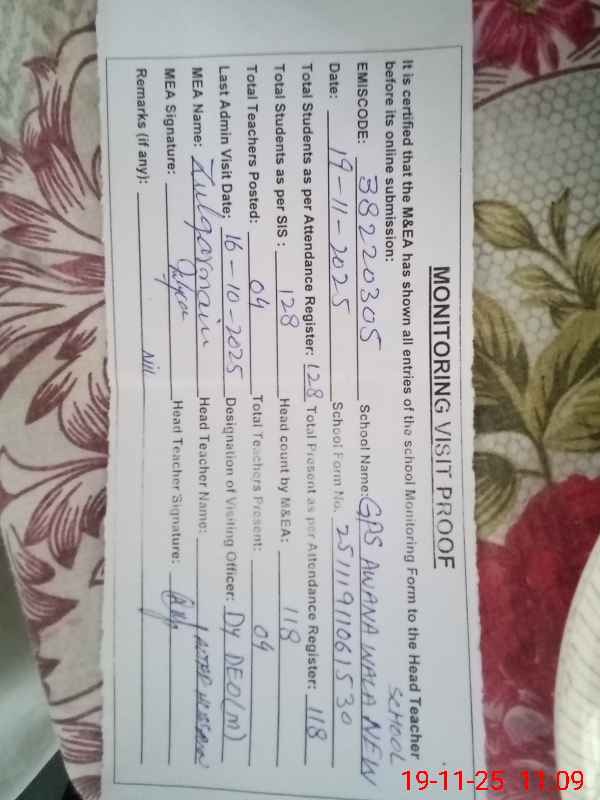 MONITORING VISIT PROOF
It is certified that the M&EA has shown all entries of the school Monitoring Form to the Head Teacher
before its online submission:
EMISCODE: 38220305 School Name: GPS AWANA WALA NEW SCHOOL
Date: 19-11-2025 School Form No. 2511191061530
Total Students as per Attendance Register: 128 Total Present as per Attendance Register: 118
Total Students as per SIS : 128 Head count by M&EA: 118
Total Teachers Posted: 04 Total Teachers Present: 04
Last Admin Visit Date: 16-10-2025 Designation of Visiting Officer: Dy DEO(M)
MEA Name: Zulqarnain Head Teacher Name:
MEA Signature: Head Teacher Signature:
Remarks (if any): Nil
19-11-25 11:09